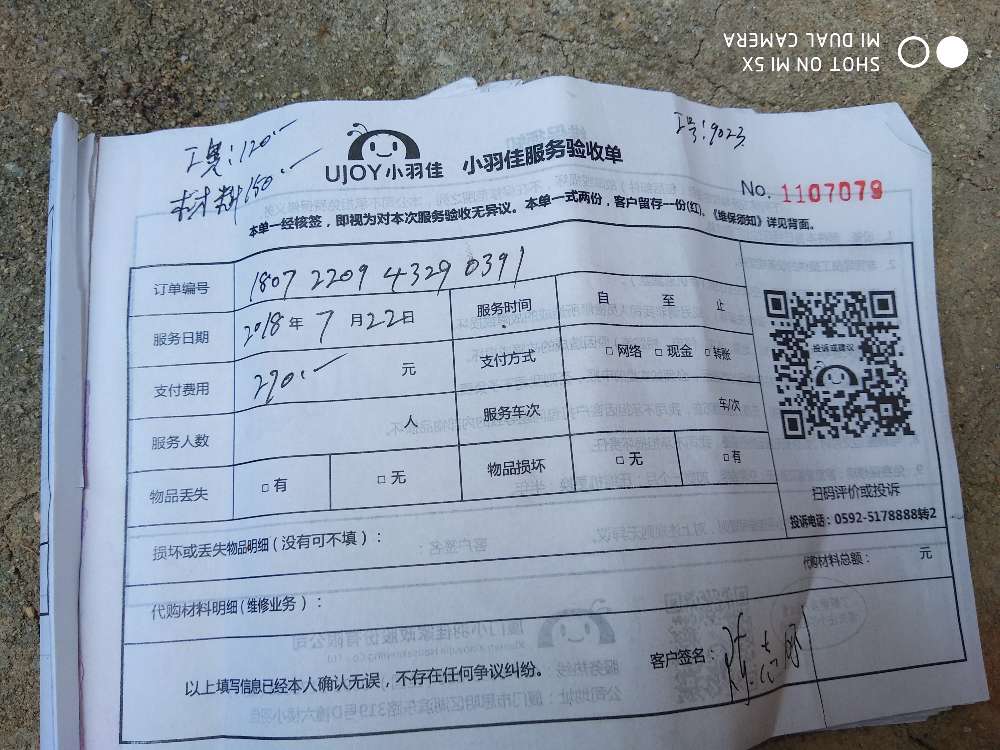 SHOT ON MI 5X
MI DUAL CAMERA
工费:120.-
材料150.-
工号:9023
UJOY小羽佳 小羽佳服务验收单
No. 1107079
本单一经核签，即视为对本次服务验收无异议。本单一式两份，客户留存一份(红)。《维保须知》详见背面。
订单编号 1807 2209 4329 0391
服务日期 2018年 7月22日 服务时间 自 至 止
支付费用 270.- 元 支付方式 □网络 □现金 □转账
服务人数 人 服务车次 车/次
物品丢失 □有 □无 物品损坏 □无 □有
投诉或建议
扫码评价或投诉
投诉电话：0592-5178888转2
损坏或丢失物品明细(没有可不填)：
代购材料明细(维修业务)： 代购材料总额： 元
以上填写信息已经本人确认无误，不存在任何争议纠纷。 客户签名：